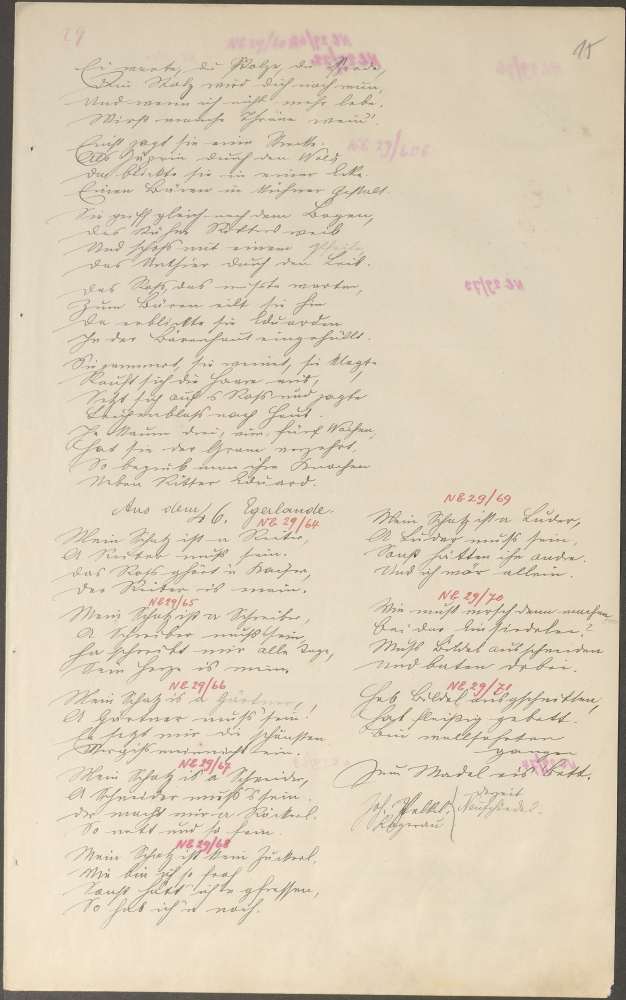 29
15
Ei warte, du Stolze, du
Dein Stolz wird dich noch reun,
Und wenn ich nicht mehr lebe,
Wirst manche Thräne wein'.
Einst jagt sie eine Strecke
Als Jägrin durch den Wald
Da blickte sie in einer Ecke
Einen Bären in kühner Gestalt.
Sie griff gleich nach dem Bogen,
Des kühnen Ritters weib
Und schoß mit einem Pfeile
Das Unthier durch den Leib.
Das Roß das mußte warten,
Zum Bären eilt sie hin
Da erblickte sie Eduarden
In der Bärenhaut eingehüllt.
Sie jammert, sie weinet, sie klagt
Rauft sich die Haare aus,
Setzt sich auf's Roß und jagte
Leichenblaß nach Haus.
In kaum drei, vier, fünf Wochen,
Hat sie der Gram verzehrt,
So begrub man ihre Knochen
Neben Ritter Eduard.
Aus dem 6. Egerlande.
NE 29/64
Mein Schatz ist a Reiter,
A Reiter muß sein.
Das Roß ghört in Kaiser,
Der Reiter is mein.
NE 29/65
Mein Schatz ist a Schreiber,
A Schreiber muß's sein,
Er schreibt mir alle Tage,
Sein Herze is mein.
NE 29/66
Mein Schatz is a Gärtner,
A Gärtner muß's sein
Er setzt mir die schönsten
Vergißmeinnicht ein.
NE 29/67
Mein Schatz is a Schneider,
A Schneider muß's sein.
Der macht mir a Röckerl
So nett und so fein.
NE 29/68
Mein Schatz ist kein Zuckerl,
Wie bin ich so froh
Sonst hätt' ich'n gfressen,
So hab ich'n noch.
NE 29/69
Mein Schatz ist a Luder,
A Luder muß's sein,
Sonst hätten ihn andre
Und ich wär allein.
NE 29/70
Wie muß mersch denn machen
Bei der Einsiedelei?
Muß Bilder ausschneiden
und beten dabei.
NE 29/71
Hab Bildel ausgschnitten,
Hab fleißig gebett.
Bin wallfahrten
gangen
Zeu Madel eis Bett.
Joh. Palkl
derzeit